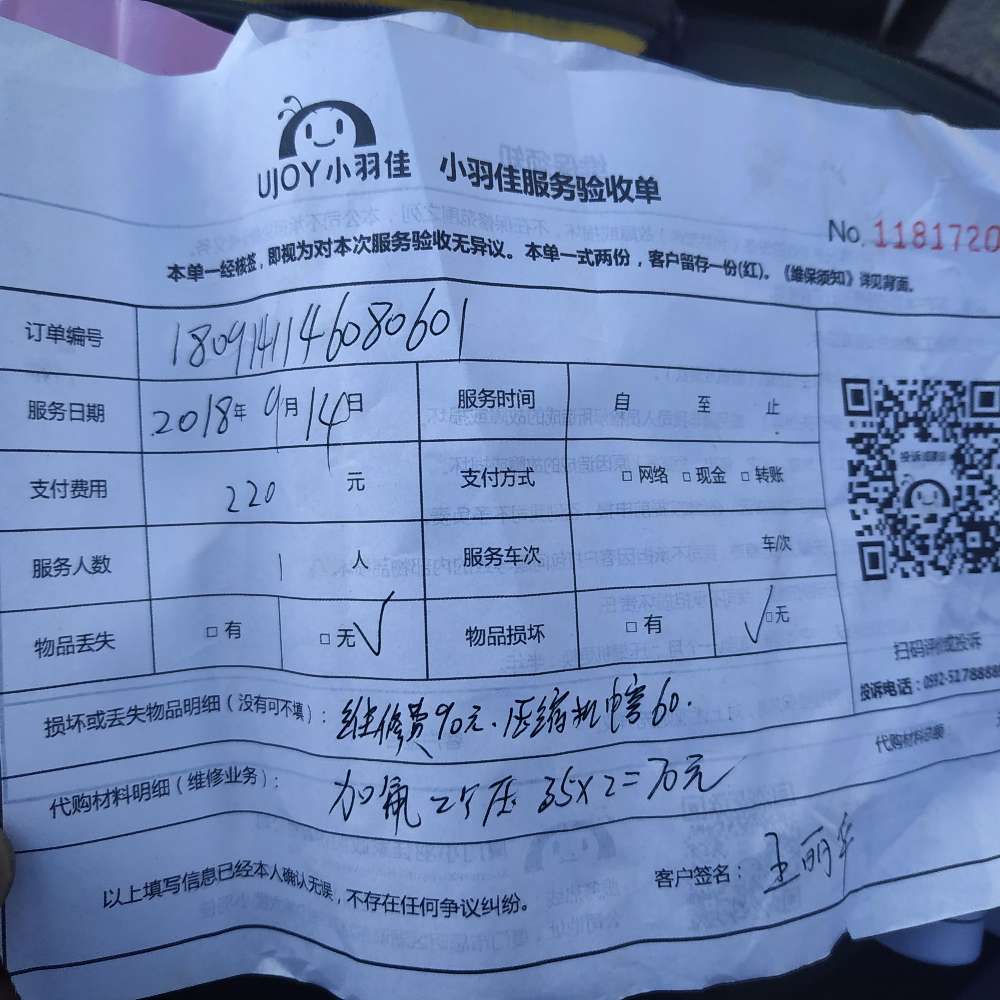 UJOY小羽佳 小羽佳服务验收单
No. 1181720
本单一经核签,即视为对本次服务验收无异议。本单一式两份,客户留存一份(红)。《维保须知》详见背面。
订单编号 180914114608060​1
服务日期 2018年9月14日 服务时间 自 至 止
支付费用 220 元 支付方式 □ 网络 □ 现金 □ 转账
投诉或建议
服务人数 1 人 服务车次 车/次
物品丢失 □ 有 □ 无 √ 物品损坏 □ 有 √ □ 无
扫码评价或投诉
投诉电话:0592-5178888
损坏或丢失物品明细(没有可不填): 维修费90元.压缩机电容60.
代购材料明细(维修业务): 加氟 2个压 35×2=70元
代购材料总额
以上填写信息已经本人确认无误,不存在任何争议纠纷。
客户签名:王丽华